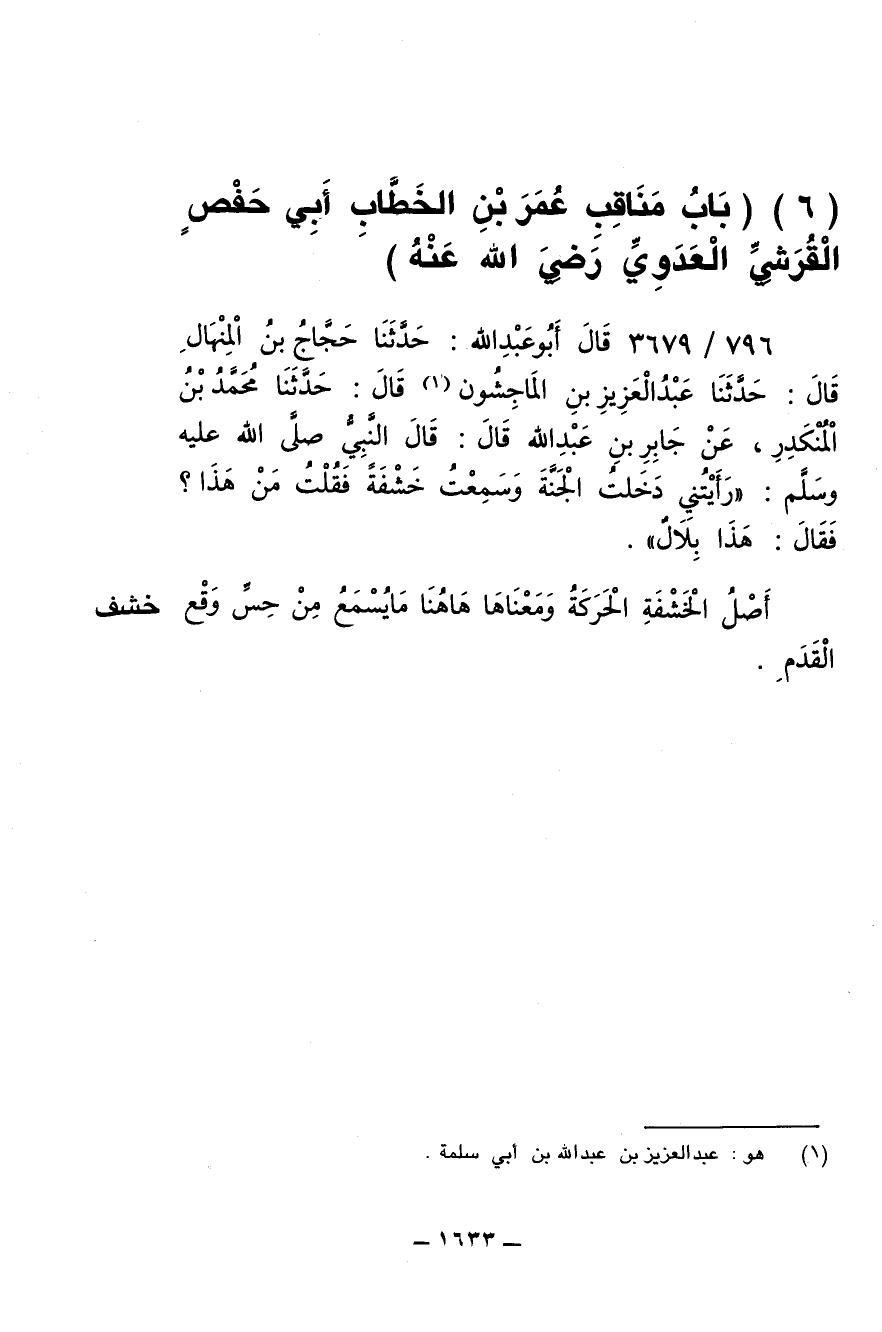 ( ٦ ) ( بَابُ مَنَاقِبِ عُمَرَ بْنِ الخَطَّابِ أَبِي حَفْصٍ
الْقُرَشِيِّ الْعَدَوِيِّ رَضِيَ الله عَنْهُ )
٧٩٦ / ٣٦٧٩ قَالَ أَبُوعَبْدِالله : حَدَّثَنَا حَجَّاجُ بنُ الْمِنْهَالِ
قَالَ : حَدَّثَنَا عَبْدُالْعَزِيزِ بنِ المَاجِشُون (١) قَالَ : حَدَّثَنَا مُحَمَّدُ بْنُ
الْمُنْكَدِرِ ، عَنْ جَابِرِ بنِ عَبْدِالله قَالَ : قَالَ النَّبِيُّ صلَّى الله عليه
وسَلَّم : «رَأَيْتُنِي دَخَلتُ الْجَنَّةَ وَسَمِعْتُ خَشْفَةً فَقُلْتُ مَنْ هَذَا ؟
فَقَالَ : هَذَا بِلَالٌ» .
أَصْلُ الْخَشْفَةِ الْحَرَكَةُ وَمَعْنَاهَا هَاهُنَا مَايُسْمَعُ مِنْ حِسِّ وَقْعِ خشف
الْقَدَمِ .
(١) هو : عبدالعزيز بن عبدالله بن أبي سلمة .
ــ ١٦٣٣ ــ